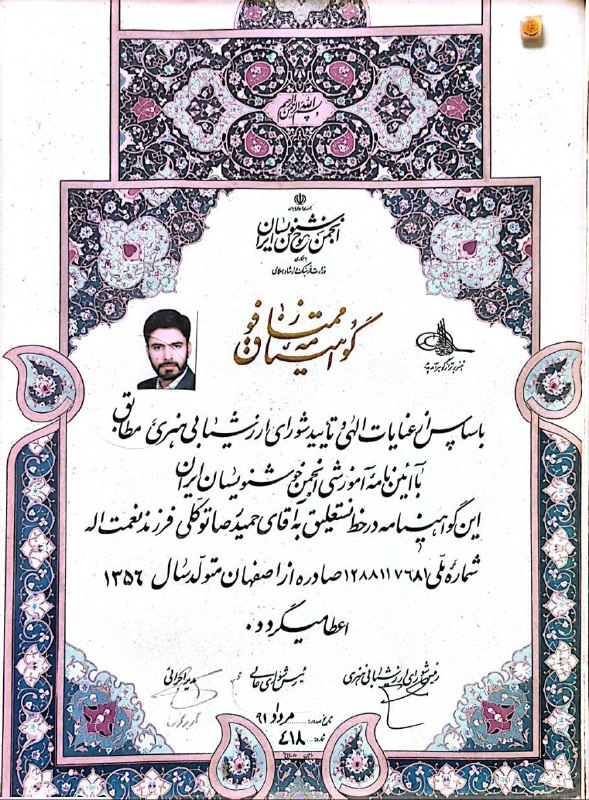 بسم الله الرحمن الرحیم
انجمن خوشنویسان ایران
با همکاری
وزارت فرهنگ و ارشاد اسلامی
گواهینامه فوق ممتاز
هنر برتر از گوهر آمد پدید
با سپاس از عنایات الهی و تایید شورای ارزشیابی هنری مطابق
با آئین نامه آموزشی انجمن خوشنویسان ایران
این گواهینامه در خط نستعلیق به آقای حمیدرضا توکلی فرزند نعمت اله
شماره ملی ۱۲۸۸۱۱۷۶۸۱ صادره از اصفهان متولد سال ۱۳۵۶
اعطا میگردد.
رئیس شورای ارزشیابی هنری
رئیس شورای عالی
مدیر اجرائی
تاریخ صدور: مرداد ۹۱
شماره: ۴۱۸